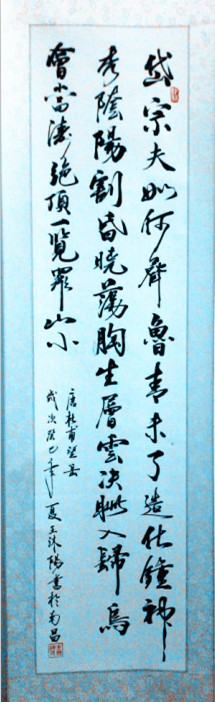 岱宗夫如何齊魯青未了造化鍾神
秀蔭陽割昏曉蕩胸生層雲決眦入歸鳥
會當凌絕頂一覽眾山小
唐杜甫望岳
歲次癸巳年夏王沐陽書於南昌